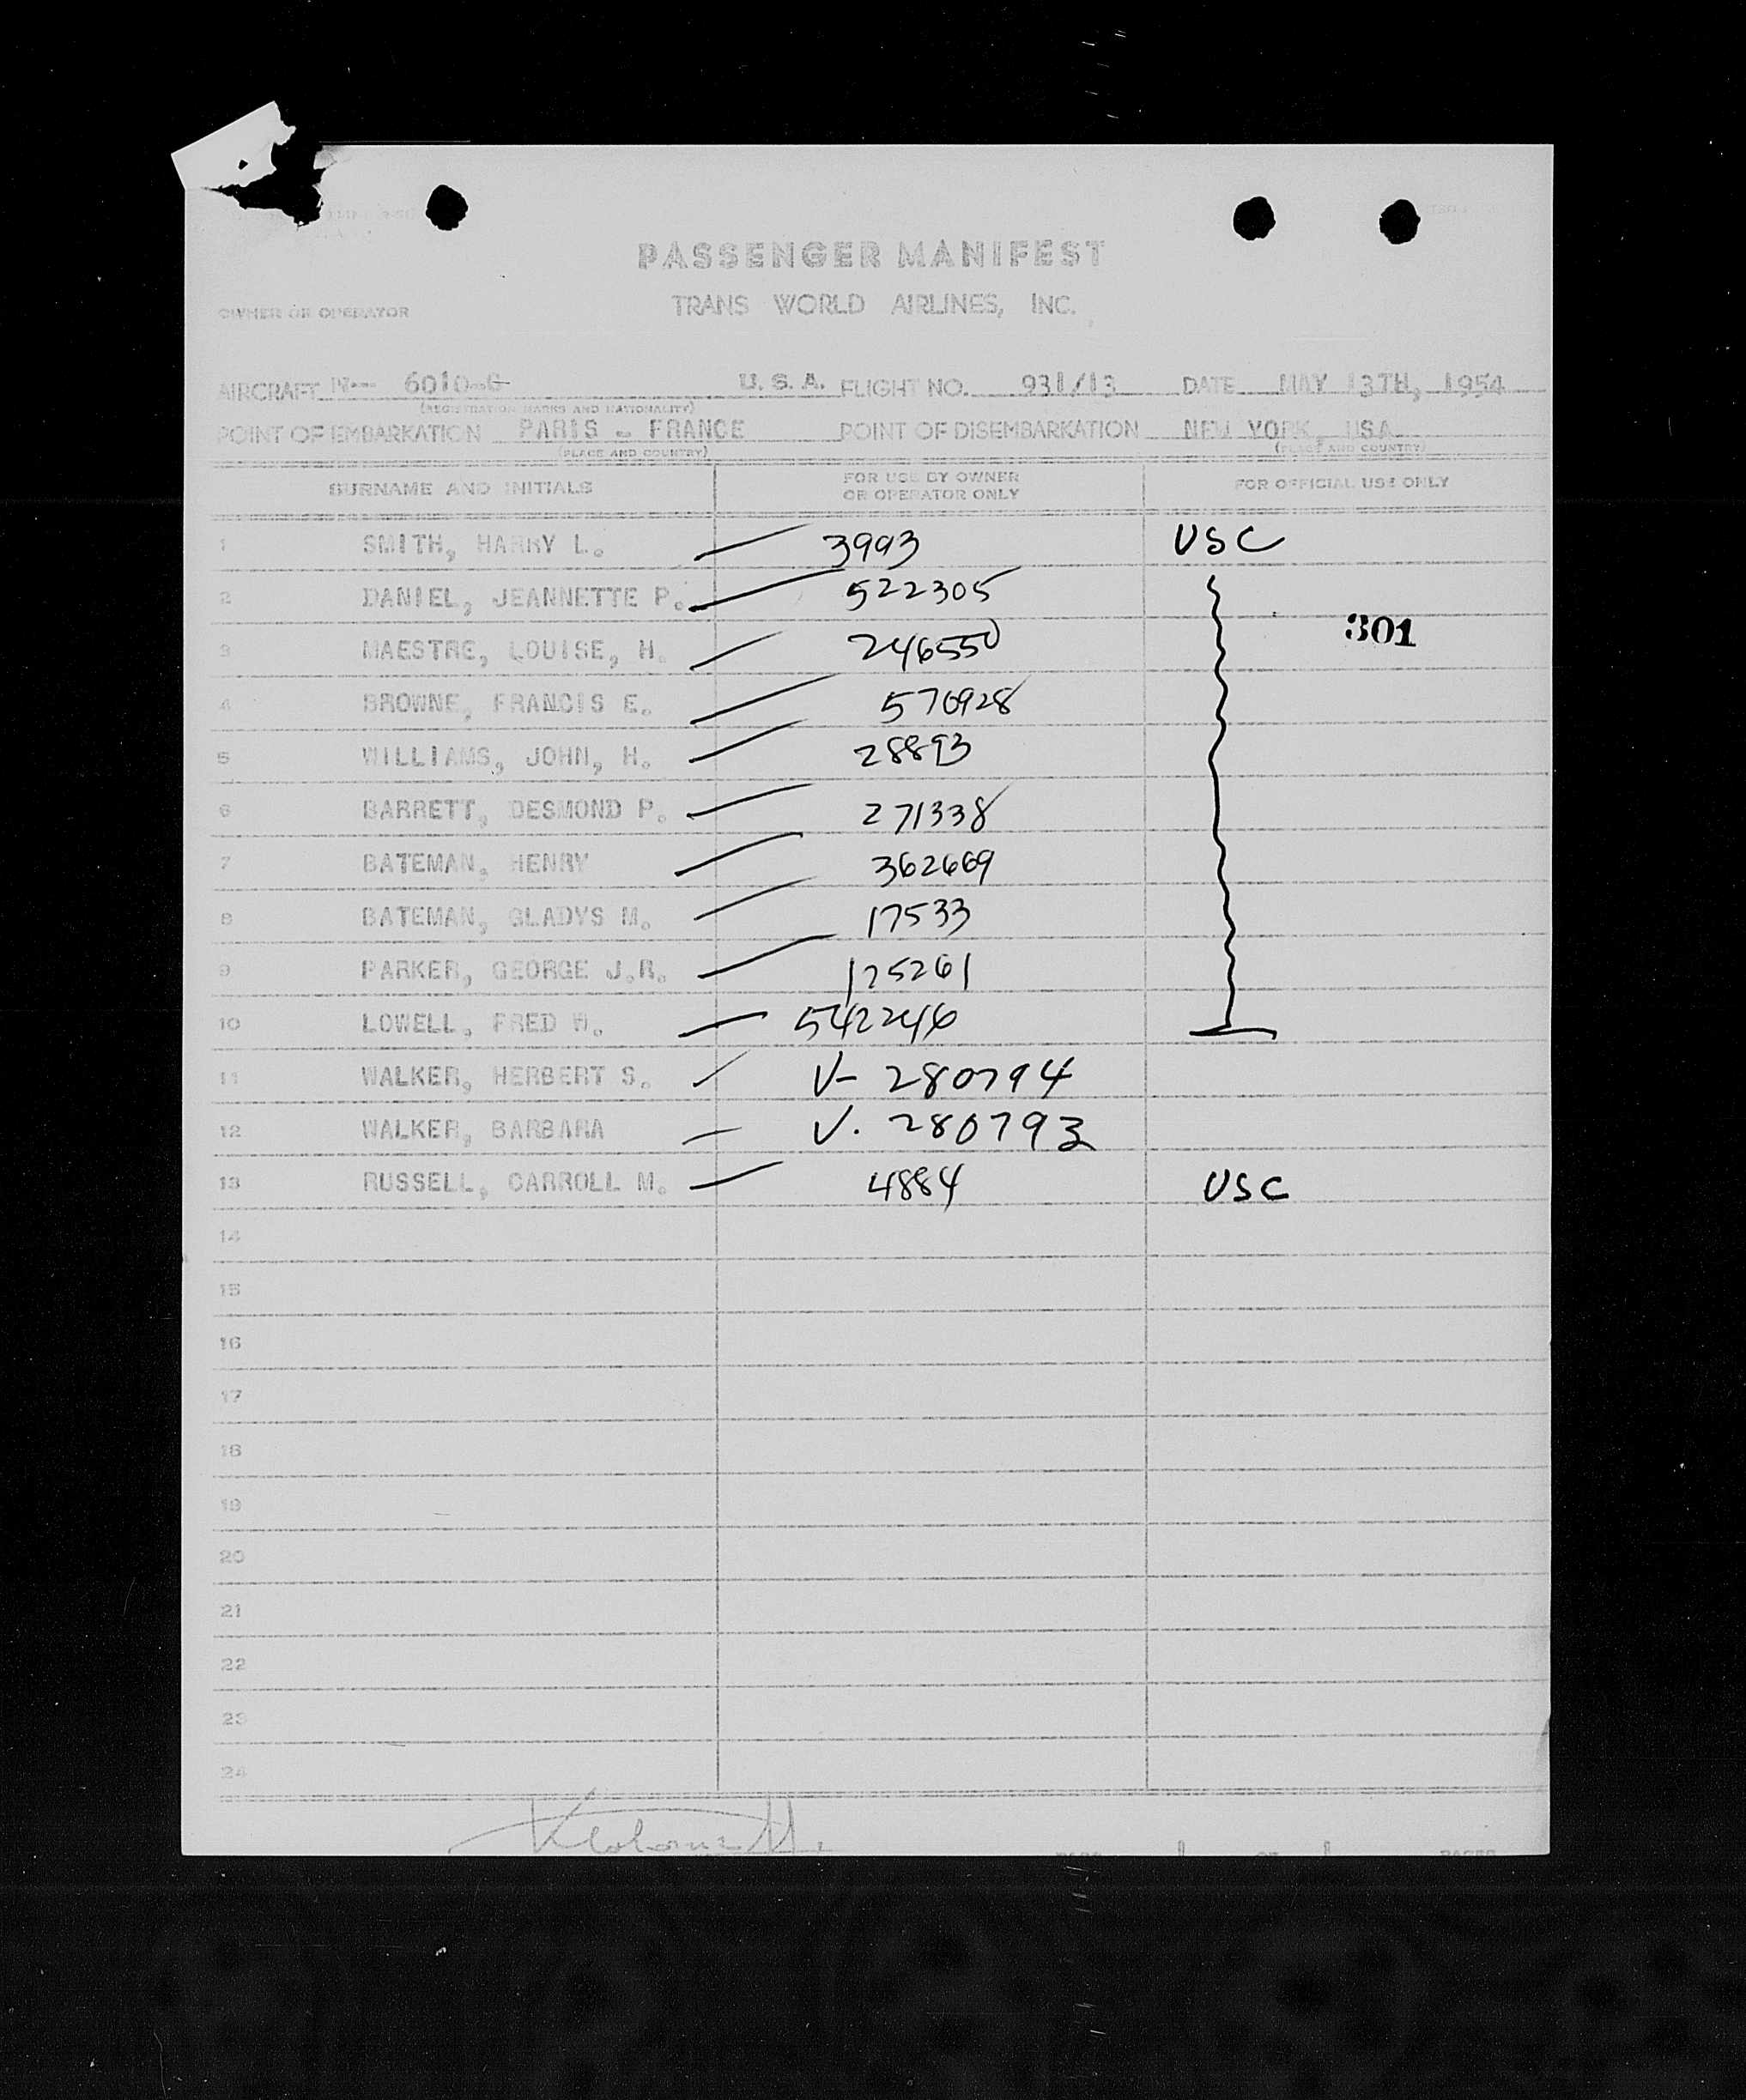 PASSENGER MANIFEST
OWNER OR OPERATOR TRANS WORLD AIRLINES, INC.
AIRCRAFT N-- 6010-C U. S. A. FLIGHT NO. 931/13 DATE MAY 13TH, 1954
(REGISTRATION MARKS AND NATIONALITY)
POINT OF EMBARKATION PARIS - FRANCE POINT OF DISEMBARKATION NEW YORK, USA
(PLACE AND COUNTRY) (PLACE AND COUNTRY)
SURNAME AND INITIALS FOR USE BY OWNER OR OPERATOR ONLY FOR OFFICIAL USE ONLY
1 SMITH, HARRY L. 3993 USC
2 DANIEL, JEANNETTE P. 522305
301
3 MAESTRE, LOUISE, H. 246550
4 BROWNE, FRANCIS E. 570928
5 WILLIAMS, JOHN, H. 28893
6 BARRETT, DESMOND P. 271338
7 BATEMAN, HENRY 362669
8 BATEMAN, GLADYS M. 17533
9 PARKER, GEORGE J.R. 125261
10 LOWELL, FRED H. 542246
11 WALKER, HERBERT S. V- 280794
12 WALKER, BARBARA V. 280793
13 RUSSELL, CARROLL M. 4884 USC
14
15
16
17
18
19
20
21
22
23
24